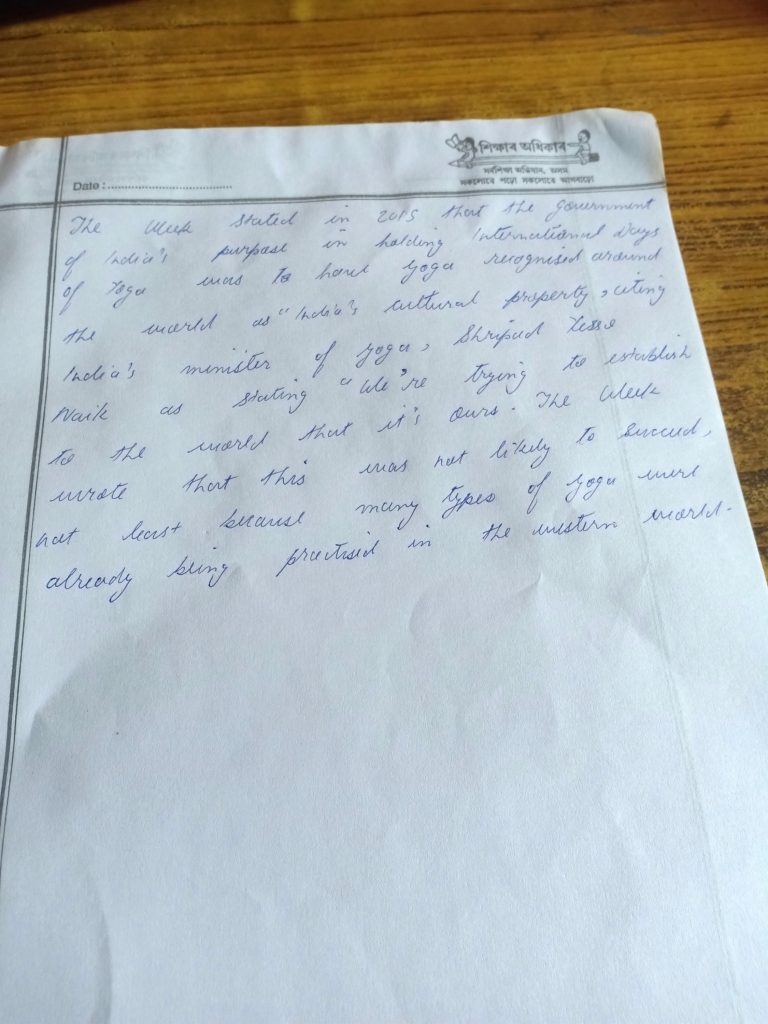 শিক্ষাৰ অধিকাৰ
সৰ্বশিক্ষা অভিযান, অসম
সকলোৱে পঢ়ো সকলোৱে আগবাঢ়ো
Date :
The Week stated in 2015 that the government
of India's purpose in holding International Days
of Yoga was to have Yoga recognised around
the world as "India's cultural property, citing
India's minister of yoga, Shripad Yesso
Naik as stating "We're trying to establish
to the world that it's ours. The Week
wrote that this was not likely to succeed,
not least because many types of yoga were
already being practised in the western world.